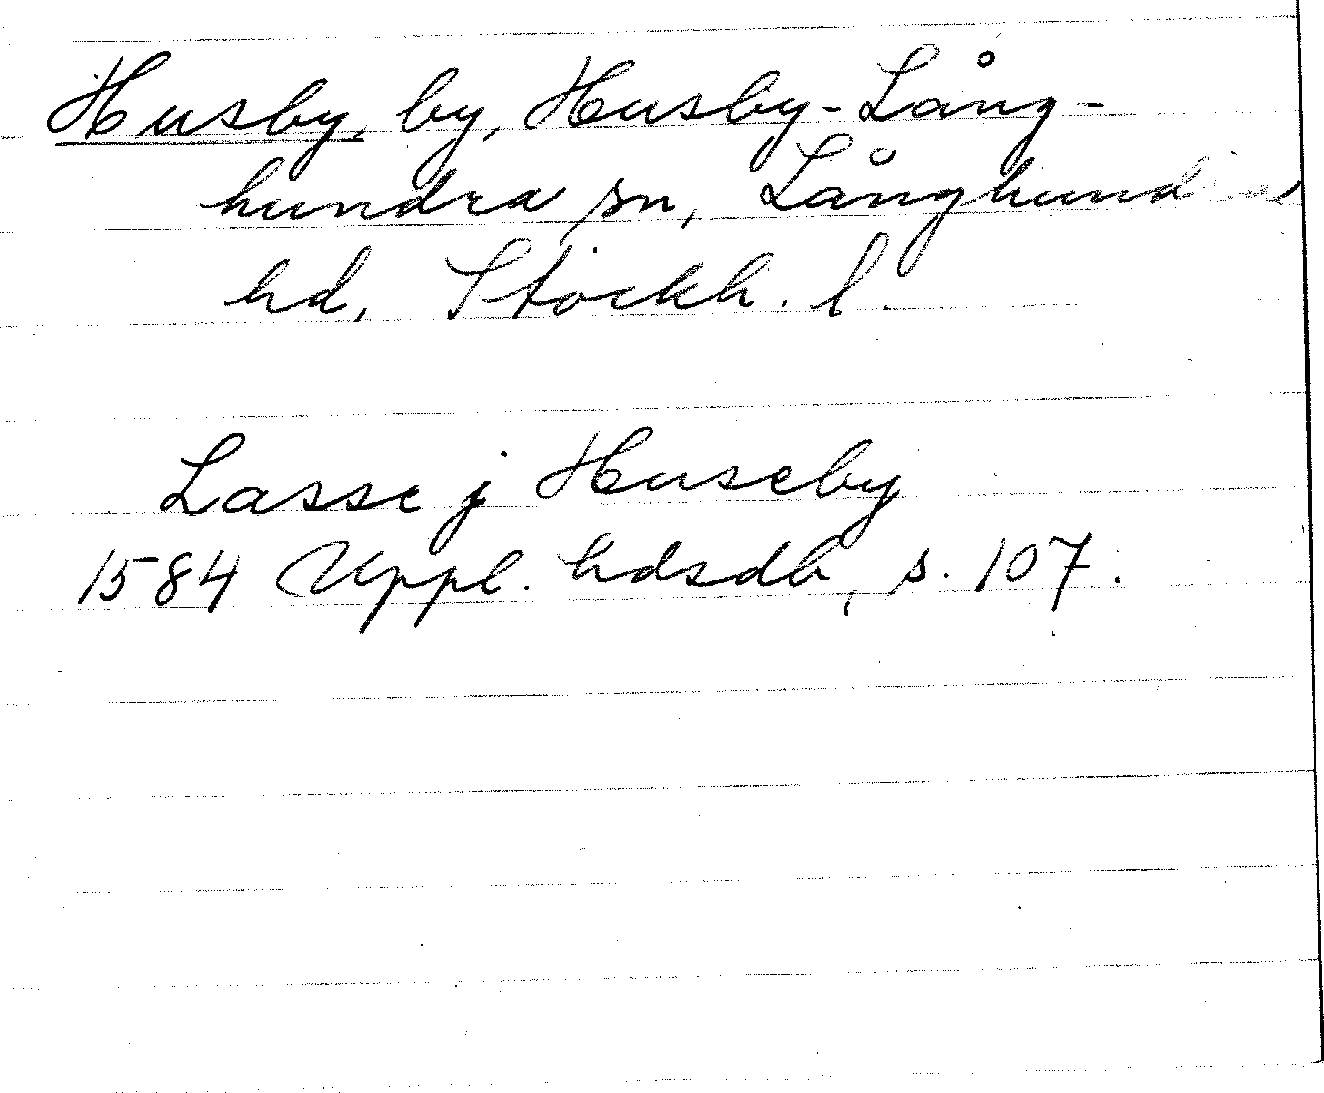 Husby, by, Husby-Lång-
hundra sn, Långhundra
hd, Stockh. l.
Lasse j Huseby
1584 Uppl. hdsdb, s. 107.